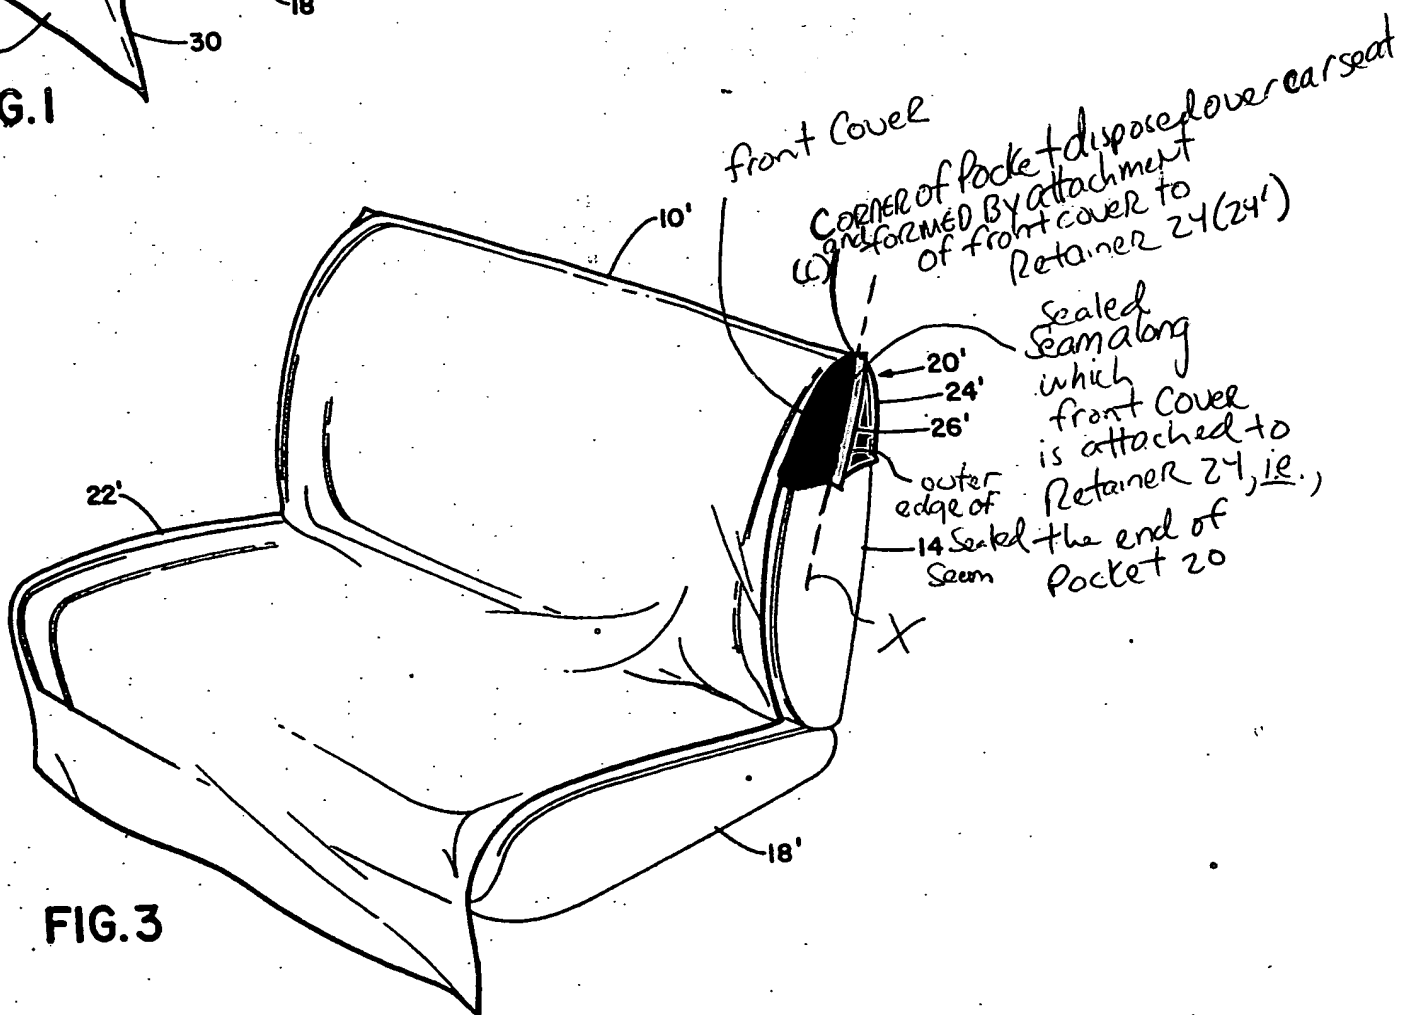 18
30
G.1
front Cover
CORNER of Pocket disposed over car seat
and FORMED BY attachment
of front cover to
Retainer 24 (24')
(c)
10'
Sealed
Seam along
which
front Cover
is attached to
Retainer 24, i.e.,
the end of
Pocket 20
20'
24'
26'
outer
edge of
Sealed
Seam
14
X
22'
18'
FIG.3